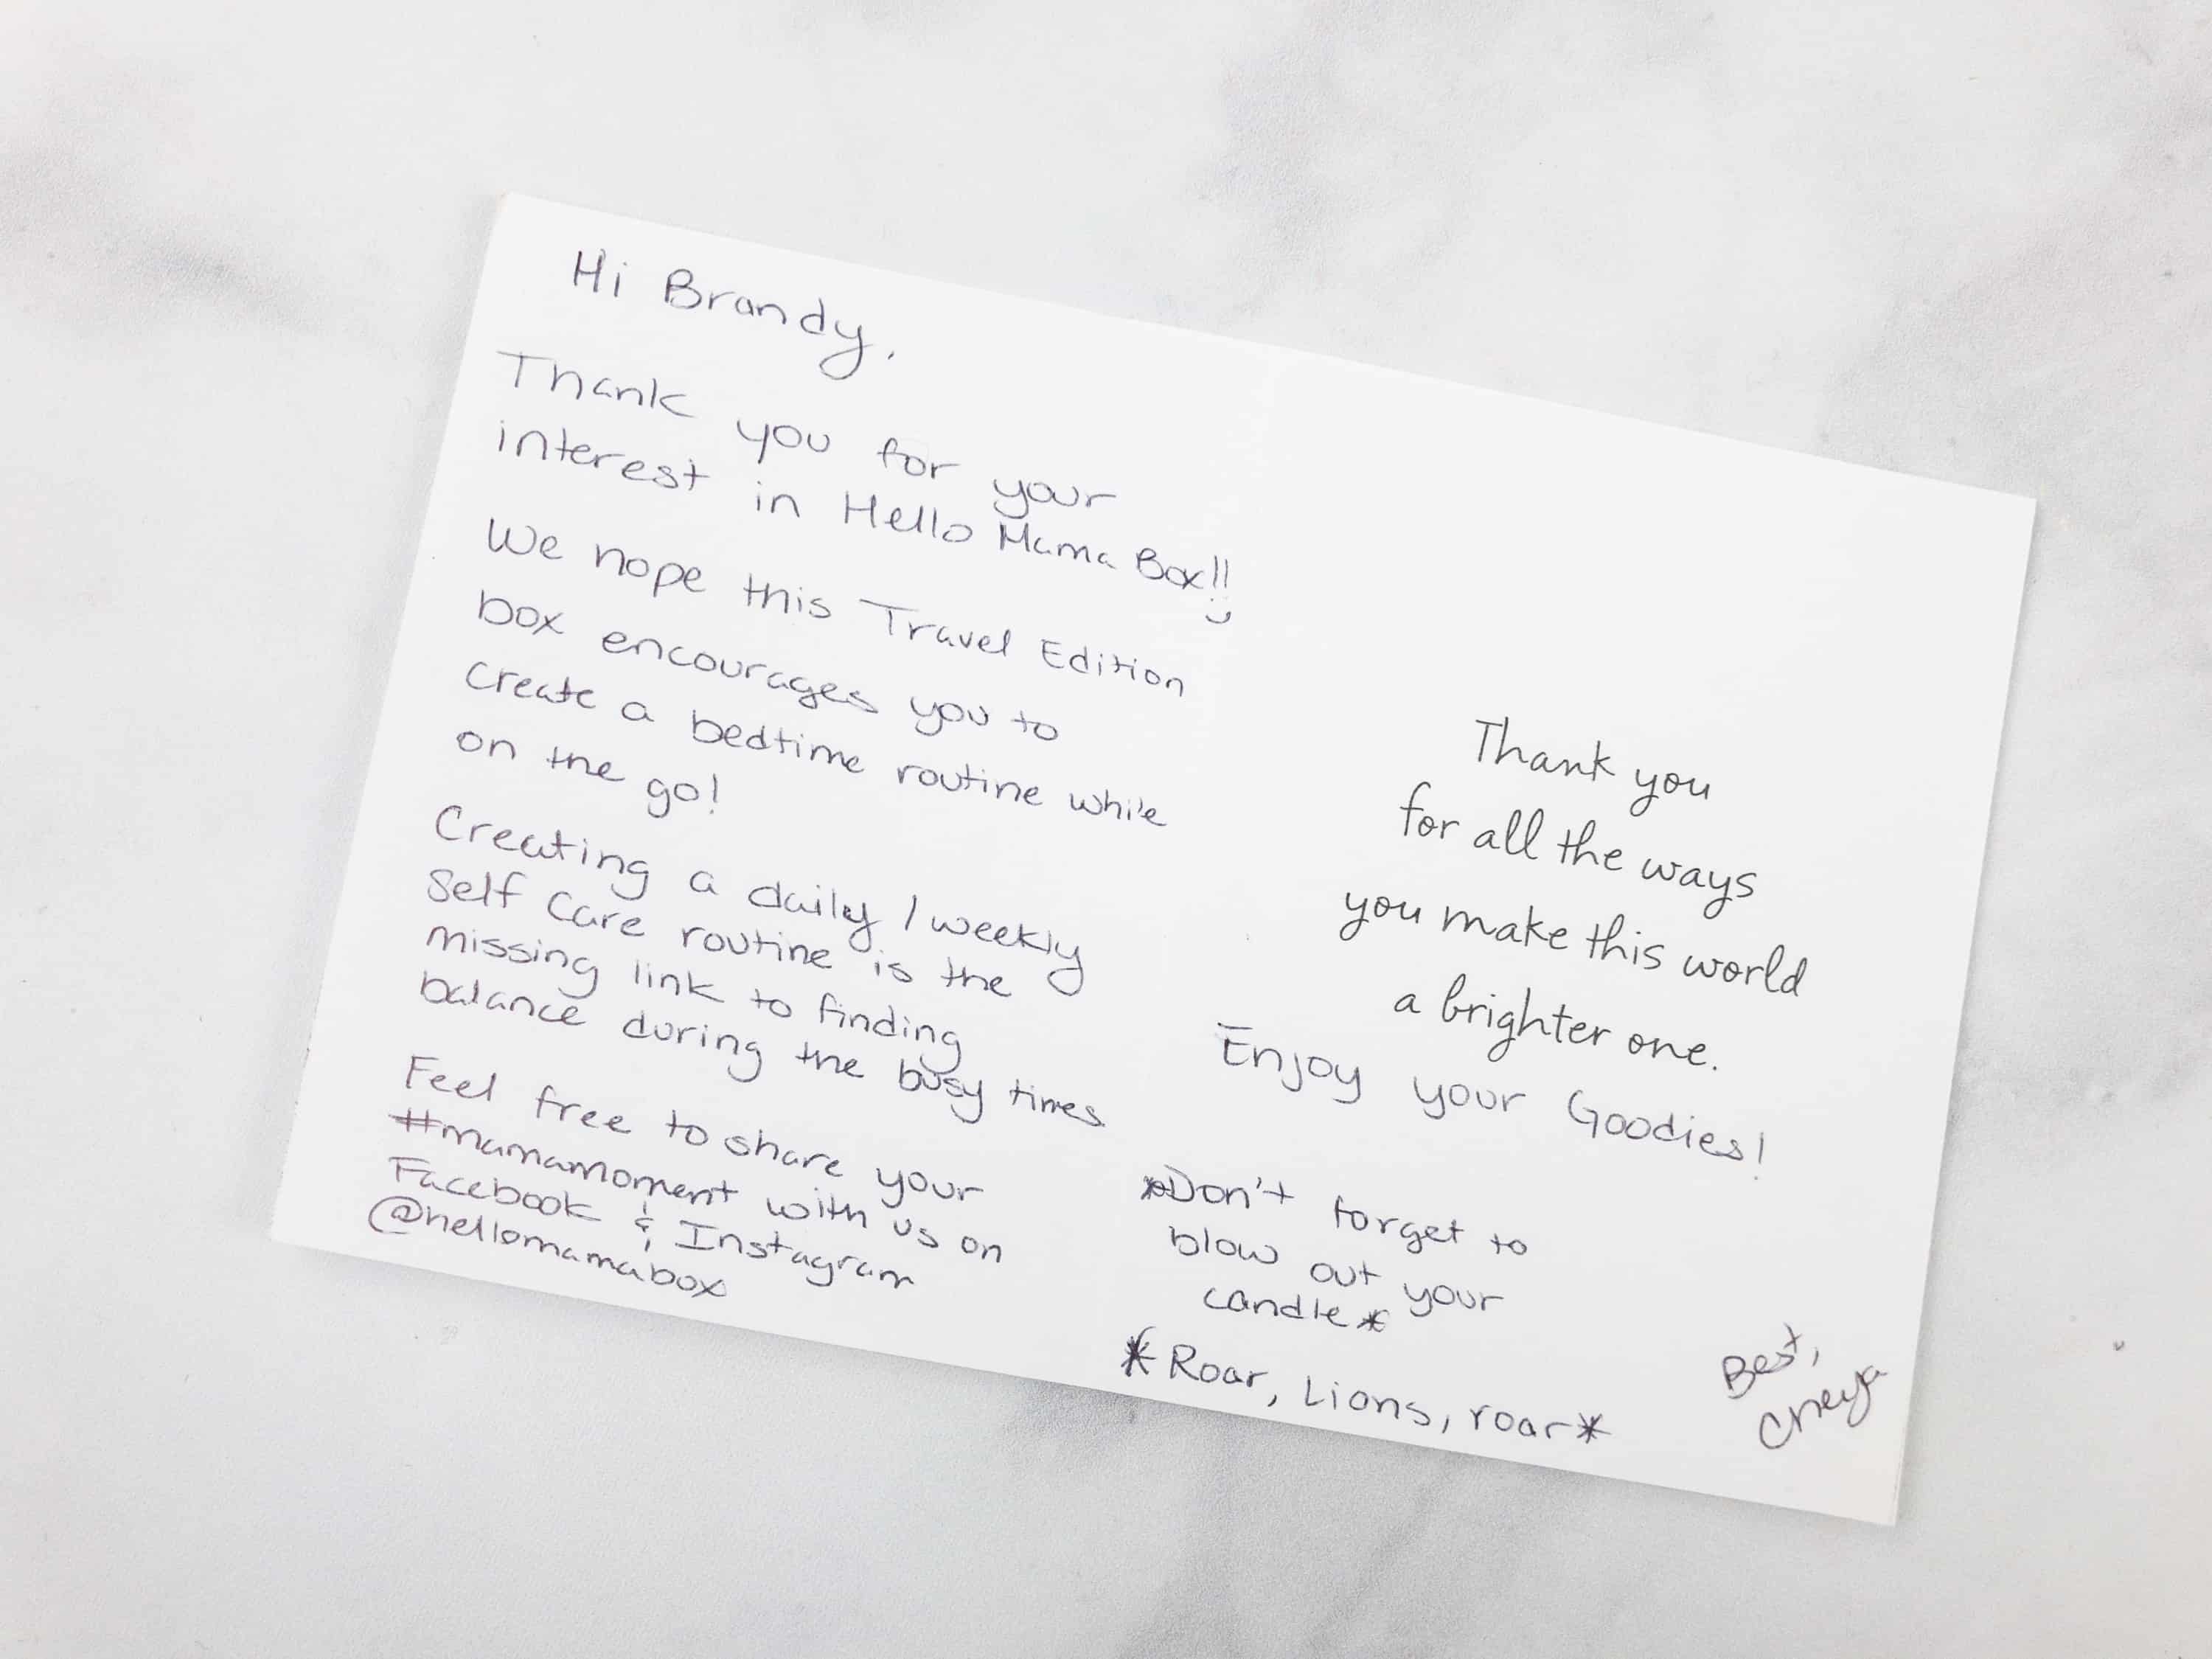 Hi Brandy,
Thank you for your
interest in Hello Mama Box!!
We hope this Travel Edition
box encourages you to
create a bedtime routine while
on the go!
Creating a daily / weekly
Self Care routine is the
missing link to finding
balance during the busy times
Feel free to share your
#mamamoment with us on
Facebook & Instagram
@hellomamabox
Thank you
for all the ways
you make this world
a brighter one.
Enjoy your Goodies!
*Don't forget to
blow out your
candle*
*Roar, Lions, roar*
Best,